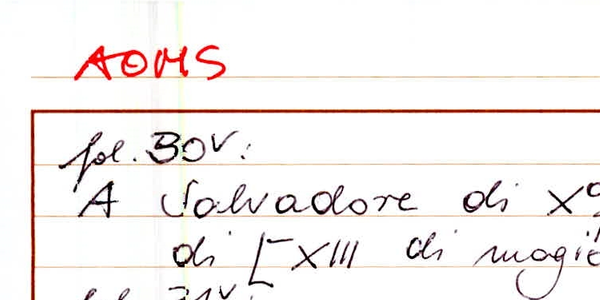 AOMS
fol. 30v:
A Salvadore di
di [XIII di